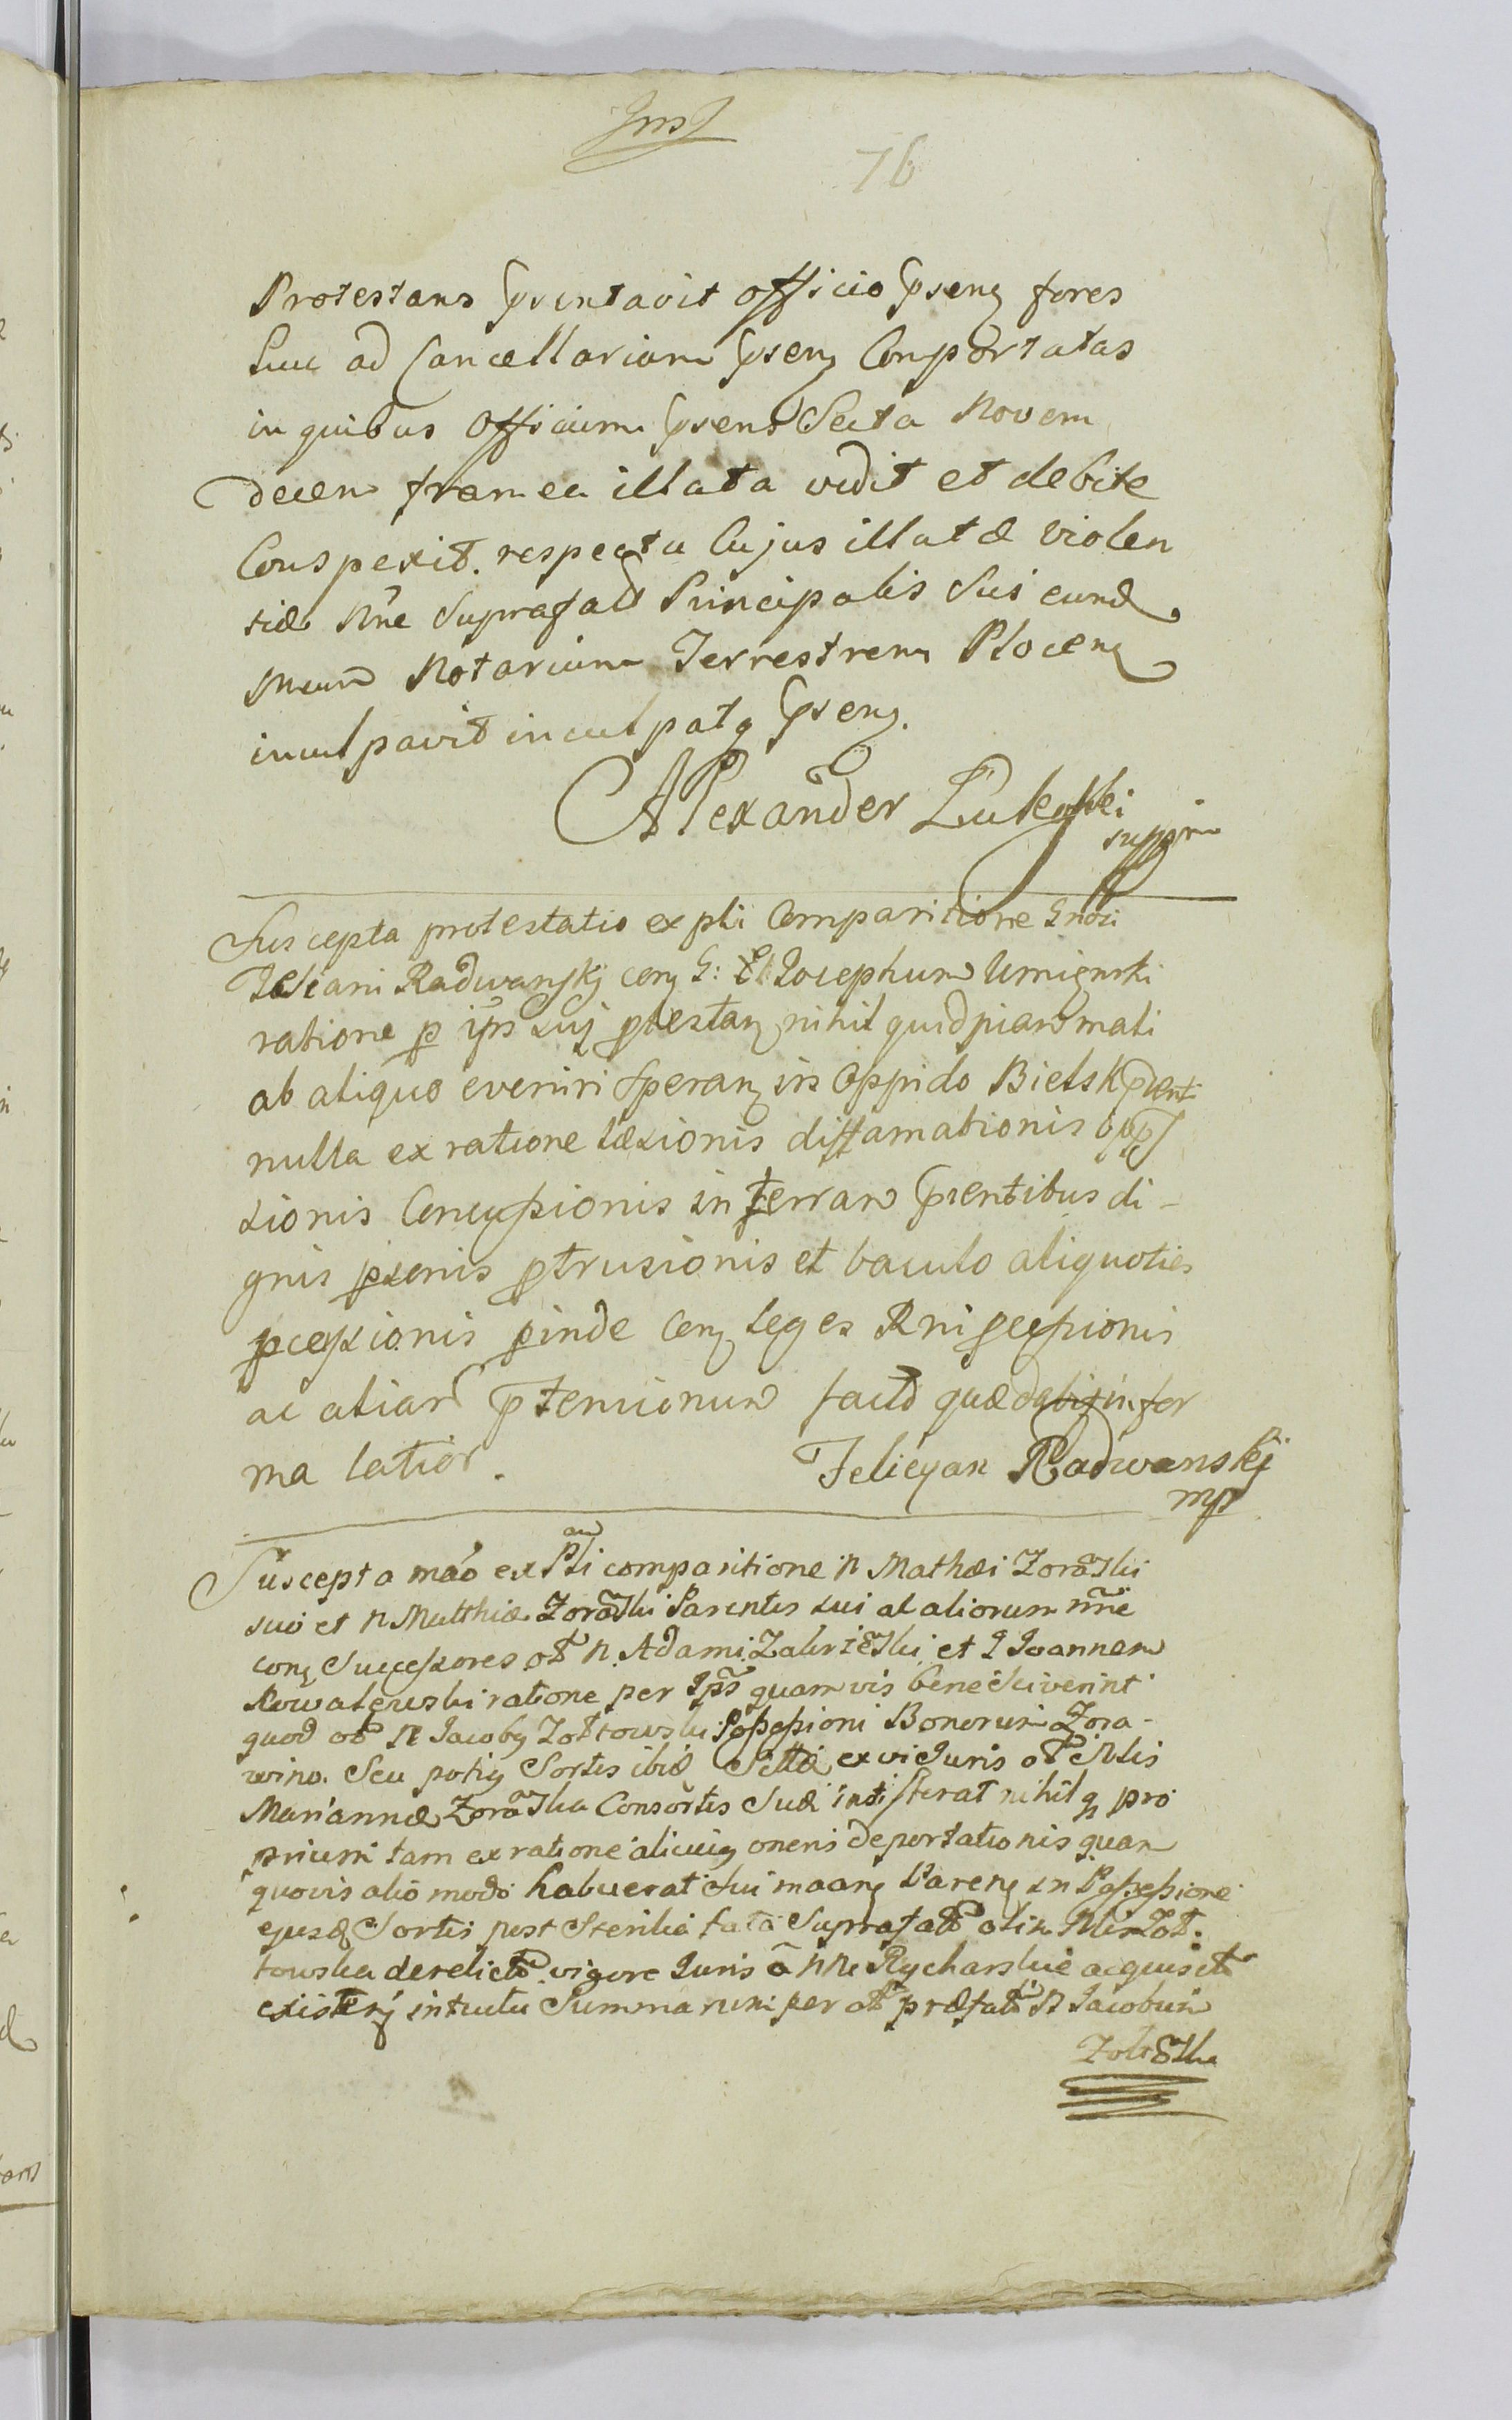 76
Protestans pntavit officio pseng fores
huc ad Cancellariam pseng Comportatas
in quibus Officium psens Secta Novem
decem framea illata vidit et debite
Conspexit. respectu Cujus illatæ violen
tiæ nne Suprafatt Principalis Sui eund
Notarium Terrestrem Ploceng
inculpavit inculpatq pseng.
Alexander
Suscepta protestatio ex pli Comparitione Gnosi
Radwanskij cong G: Josephum Umięnski
ratione p ips suj ptestang nihil quidpiam mali
ab aliquo eveniri Sperang in Oppido Bielsk pdent
nulla ex ratione læsionis diffamationis
sionis Concussionis in terram pientibus di-
gnis psonis ptrusionis et baculo aliquoties
pcessionis pinde cong leges Rni
ac aliar ptensionum factæ quæ dabit in for
ma latior.
Felicyan Radwanskj
mp
Suscepta mao ex Pli comparitione N Mathæi Zorawski
suo et N Matthiæ Zorawski Parentis sui ac aliorum nne
cong Successores ol N. Adami et G Joannem
Kowalewski ratione per Ips quamvis bene Sciverint
quod ol N Jacobg Zoltowski Possessioni Bonorum Zora-
wino. Seu potig Sortis ibid Sittæ ex vi Juris ol
Mariannæ Zorawska Consortis Suæ institerat nihilq pro
prium tam ex ratione alicuig oneris deportationis quam
quovis alio modo habuerat Sui maang Pareng in Possessione
ejusd Sortis post Sterilia fata Suprafatt olim Zol.
towska derelictæ vigore Juris a NN Rycharskie acquisitæ
existeng intuitu Summarum per ol præfatt N Jacobum